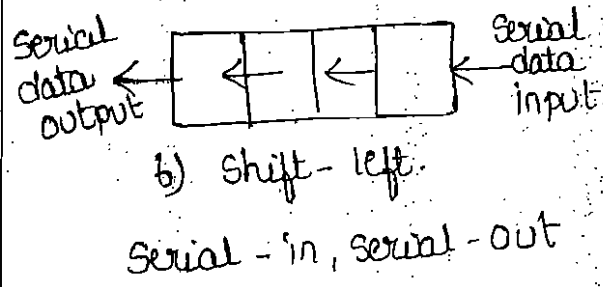 Serial
data
output
Serial
data
input
b) Shift-left.
Serial-in, Serial-out